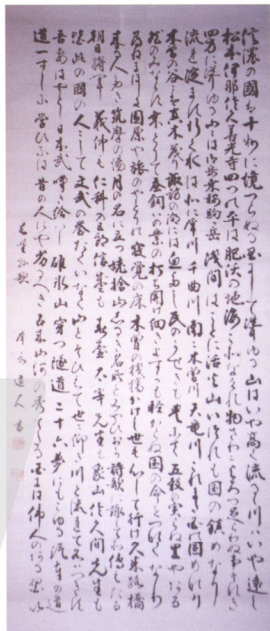 信濃の国は十州に境つらぬる国にして聳ゆる山はいや高く流るゝ川はいや遠し
松本伊那佐久善光寺四つの平は肥沃の地海こそなけれ物さわに万つ足らわぬ事そなき
四方に聳ゆる山々は御嶽乗鞍駒岳浅間はことに活火山いつれも国の鎮めなり
流れ淀ますゆく水は北に犀川千曲川南に木曽川天竜川これまた国の固めなり
木曽の谷には真木茂り諏訪の湖には魚多し民のかせきも豊かにて五穀の実らぬ里やある
然のみならす桑とりて蚕飼の業の打ち開け細きよすかも軽からぬ国の命をつなくなり
尋ねまほしき園原や旅のやとりの寝覚の床木曽の棧かけし世も心して行け久米路橋
来る人多き筑摩の湯月の名に立つ姨捨山しるき名所とみやびをか詩歌に詠てそ伝えたる
朝日将軍義仲も仁科の五郎信盛も春台太宰先生も象山佐久間先生も
皆此国の人にして文武の誉たくいなく山とそびえて世に仰き川と流れて名は尽す
吾妻はやとし日本武嘆き給いし碓氷山穿つ隧道二十六夢にもこゆる汽車の道
道一すしに学ひなは昔の人にや劣るへき古来山河の秀てたる国には偉人のある習い
道人書